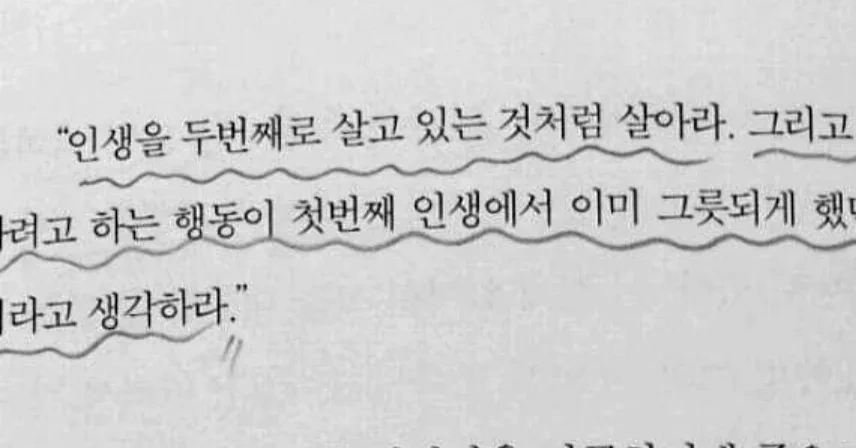 “인생을 두번째로 살고 있는 것처럼 살아라. 그리고
하는 행동이 첫번째 인생에서 이미 그릇되게
생각하라.”